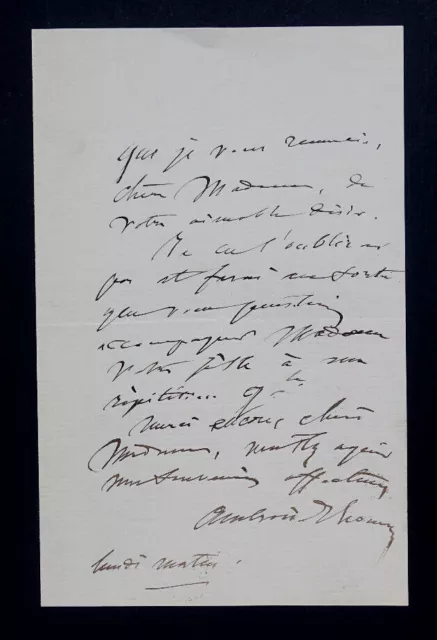 que je vous remercie,
chère Madame, de
votre aimable désir.
Je ne l'oublierai
pas et ferai en sorte
que vous puissiez
accompagner Madame
votre fille à une
répétition... gle
Merci encore, chère
Madame, veuillez agréer
mes souvenirs affectueux
Ambroise Thomas
lundi matin.